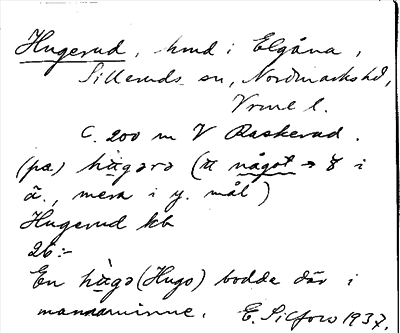 Hugerud, hmd i Elgåna,
Silleruds sn, Nordmarks hd,
Vrml l.
C. 200 m V Raskerud.
(pa.) hùgərə (ɯ något → 8 i
ä., mera i y. mål)
Hugerud kb
26:-
En hùgə (Hugo) bodde där i
mannaminne. E. Silfors 1937.